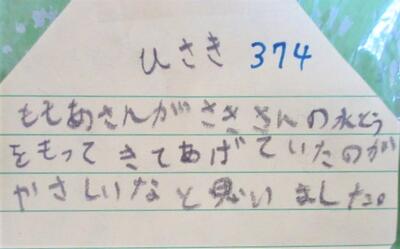 ひさき 374
ももあさんがささきさんの水とう
をもってきてあげていたのが
やさしいなと思いました。